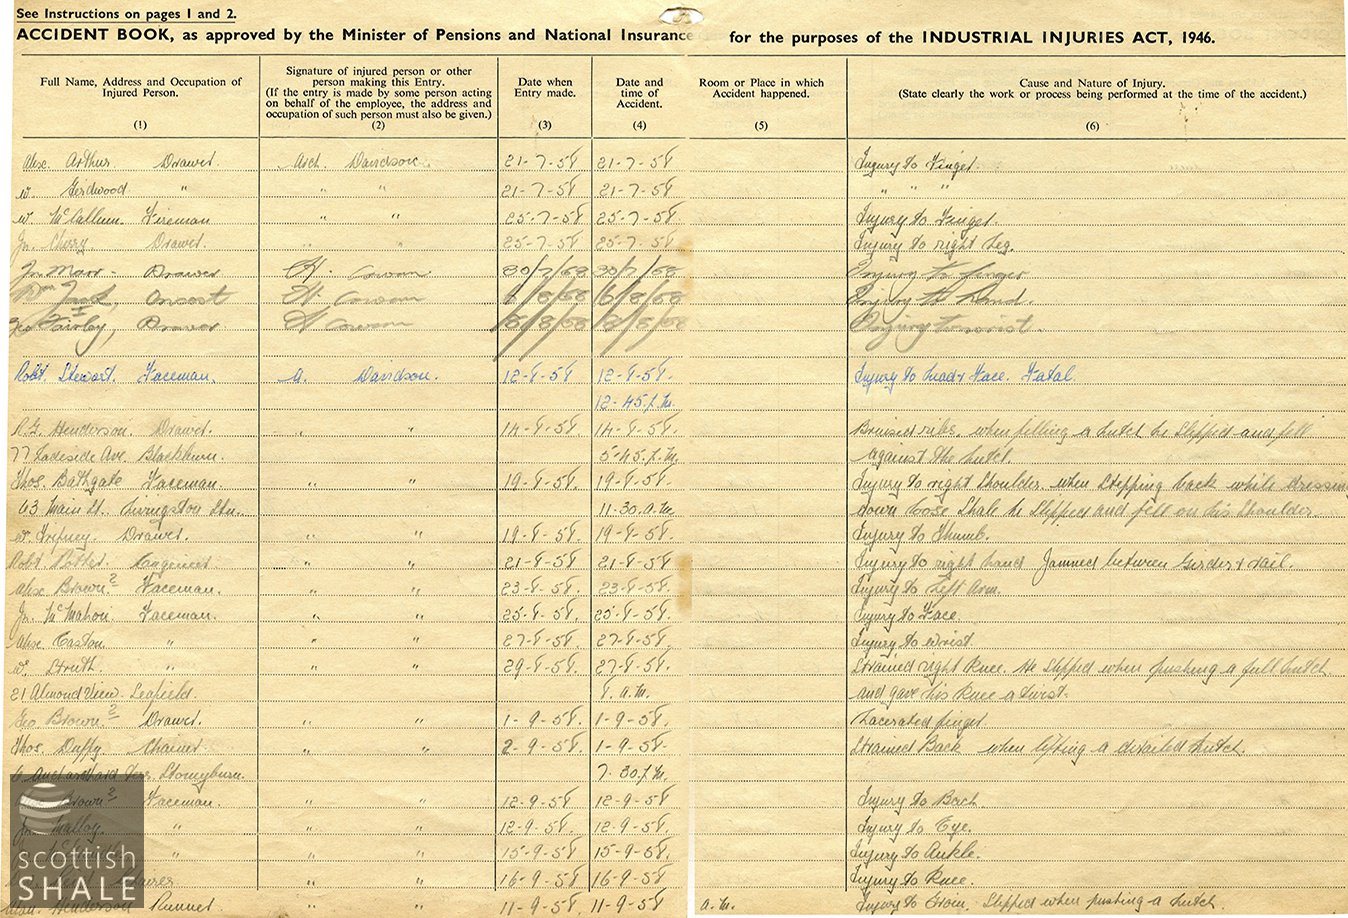 See Instructions on pages 1 and 2.
ACCIDENT BOOK, as approved by the Minister of Pensions and National Insurance for the purposes of the INDUSTRIAL INJURIES ACT, 1946.
Full Name, Address and Occupation of Injured Person. (1)
Signature of injured person or other person making this Entry. (If the entry is made by some person acting on behalf of the employee, the address and occupation of such person must also be given.) (2)
Date when Entry made. (3)
Date and time of Accident. (4)
Room or Place in which Accident happened. (5)
Cause and Nature of Injury. (State clearly the work or process being performed at the time of the accident.) (6)
Alex. Arthur. Drawer. Arch. Davidson. 21-7-58 21-7-58 Injury to Finger.
W. Girdwood " " " 21-7-58 21-7-58 " " "
W. McCallum. Fireman " " 25-7-58 25-7-58 Injury to Finger.
Jn. Cherry Drawer. " " 25-7-58 25-7-58 Injury to right Leg.
Jn Marr - Drawer Cowan 30/7/58 30/7/58 Injury to finger
Wm Oncost Cowan 6/8/58 6/8/58 Injury to Hand.
Geo Fairley, Drawer Cowan 8/8/58 8/8/58 Injury to wrist.
Robt. Stewart. Faceman. A. Davidson. 12-8-58 12-8-58. Injury to head & Face. Fatal.
12-45 p.m.
R.G. Henderson. Drawer. " " 14-8-58. 14-8-58. Bruised ribs. when filling a hutch he slipped and fell
77 Ladeside Ave. Blackburn. 5-45. p.m. against the hutch.
Thos. Bathgate Faceman. " " 19-8-58. 19-8-58. Injury to right shoulder. when stepping back while dressing
63 Main St. Livingston Stn. 11-30. a.m. down loose Shale he slipped and fell on his shoulder.
W. Drawer. " " 19-8-58. 19-8-58. Injury to Thumb.
Robt. Potter. Engineer " " 21-8-58. 21-8-58. Injury to right hand Jammed between Girder & rail.
Alex. Brown 2 Faceman. " " 23-8-58. 23-8-58. Injury to Left Arm.
Jn. McMahon. Faceman. " " 25-8-58. 25-8-58. Injury to Face.
Alex. Easton. " " " 27-8-58. 27-8-58. Injury to wrist.
W. Struth. " " " 29-8-58. 27-8-58. Strained right Knee. He slipped when pushing a full hutch
21 Almond View. Seafield. 8. a.m. and gave his Knee a twist.
Geo Brown 2 Drawer. " " 1-9-58. 1-9-58. Lacerated finger.
Thos. Duffy. Chainer. " " 2-9-58. 1-9-58. Strained Back when lifting a derailed hutch.
Terr. Stoneyburn. 7.30. p.m.
Brown 2 Faceman. " " 12-9-58. 12-9-58 Injury to Back.
Jn. Malloy. " " " 12-9-58. 12-9-58. Injury to Eye.
" " " 15-9-58. 15-9-58. Injury to Ankle.
" " 16-9-58. 16-9-58. Injury to Knee.
Henderson Runner. " " 11-9-58. 11-9-58. a.m. Injury to Groin. Slipped when pushing a hutch.
scottish
SHALE